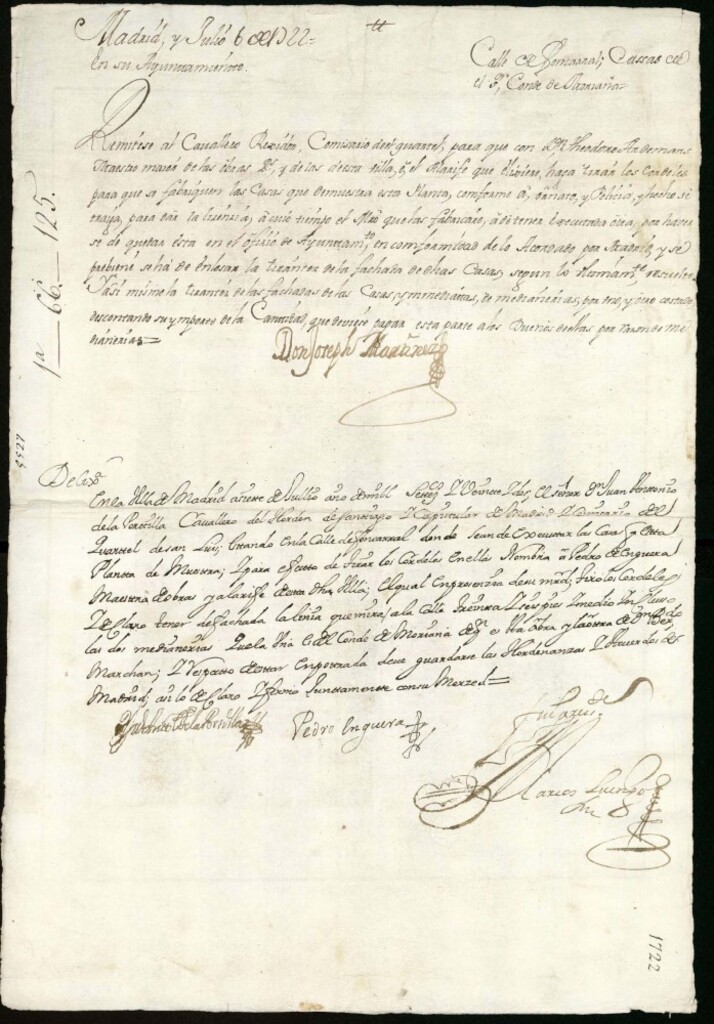 Madrid, y Julio 6 de 1722=
en su Ayuntamiento.
Calle de Fuencarral; Cassas de
el Sr. Conde de
Remitese al Cavallero Rexidor, Comisario de el quartel, para que con Dn Theodoro Ardemans
Maestro maior de las obras Rs, y de las de esta villa, y el Alarife que eligiere, haga tirar los Cordeles
para que se fabriquen las Casas que demuestra esta Planta, conforme a, ornato, y Policia, y hecho se
traiga, para dar la licencia, a cuio tiempo el Mro que las fabricare, a de tener executada otra, por haver
se de quedar esta en el ofizio de Ayuntamto, en conformidad de lo Acordado por Madrid, y se
previene se ha de enlosar la tirantez de la fachada de dhas Casas, segun lo resuelto
Y asi misma la tirantez de las fachadas de las Casas, ymmediatas, de medianerias, por uno, y otro costado
descontando su ymporte de la Cantidad, que deviese pagar esta parte a los Dueños de ellas por razon de me
dianerias=
Don Joseph Martinez
1a 66. 125.
9527
En la Villa de Madrid a siete de Jullio año de mill Settezs y Veinte y dos, el señor Dn Juan Antonio
de la Portilla Cavallero del Horden de Santiago y Capitular de Madrid y Comisario del
Quarttel de San Luis; Estando en la Calle de fuencarral don de se an de Executar las Casas q esta
Plantta de Muestra; y para efecto de tirar los Cordeles en ella Nombro a Pedro de Enguera
Maestro de obras y alarife de esta dha Villa; el qual en presenzia de su mrd, tiro los Cordeles
y de claro tener de fachada la linia que mira a la Calle treinta y seis pies y medio Yn clusso
las dos medianerias que la Una es del Conde de Moriana de qn es esta obra y la otra de
Marchan; y Respecto de estar empedrada deve guardarse las Hordenanzas y Acuerdos de
Madrid; asi lo declaro y firmo Junttamente con su Merzed=
Dn Juan Antto de la Portilla
Pedro Enguera
Marcos
1722